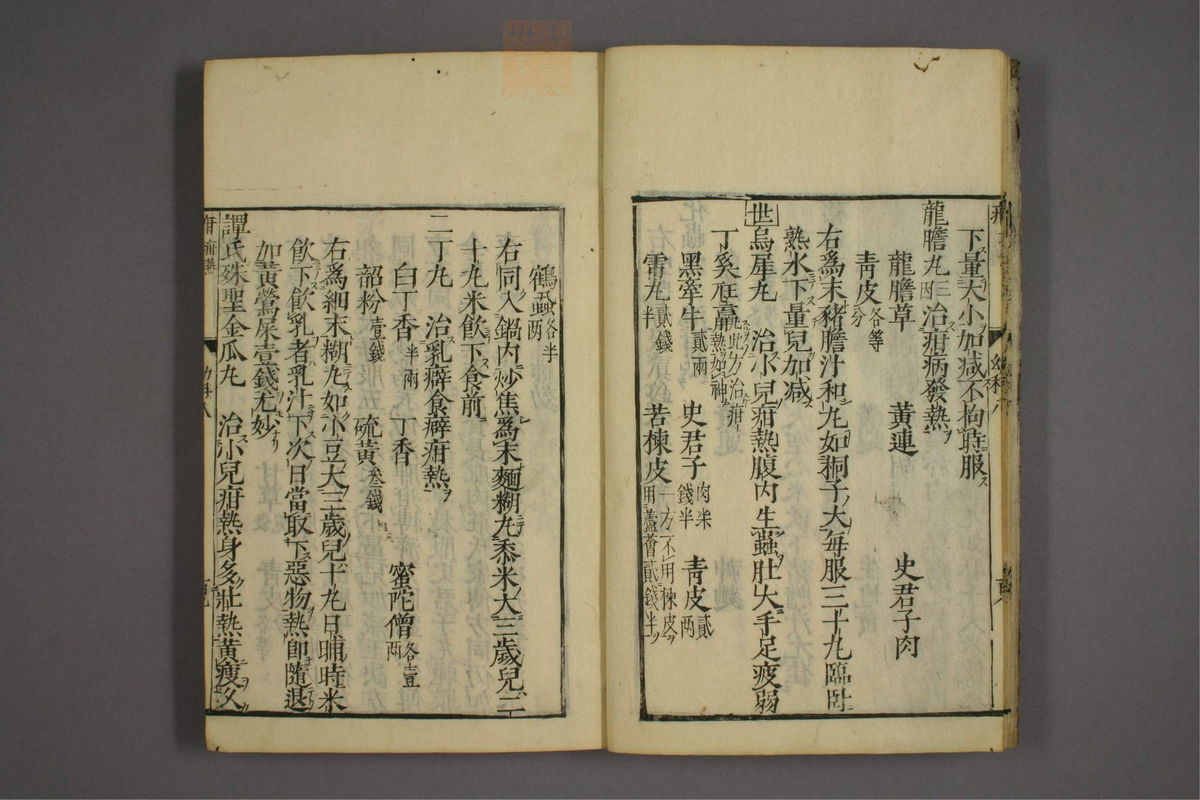 下量大小加减不拘時服
龍膽丸三 治疳病發熱
龍膽草 黄連 史君子肉
青皮各等分
右為末豬膽汁和丸如桐子大每服三十丸臨卧
熟水下量兒加减
世烏犀丸 治小兒疳熱腹内生蟲肚大手足疲弱
丁奚尫羸此方治疳熱如神
黑牽牛貳兩 史君子肉米錢半 青皮貳兩
雷丸貳錢半 苦楝皮一方不用楝皮用蘆薈貳錢半
鶴蝨各半兩
右同入鍋内炒焦為末麵糊丸黍米大三歲兒二
十丸米飲下食前
二丁丸 治乳癖食癖疳熱
白丁香半兩 丁香 蜜陀僧各壹兩
韶粉壹錢 硫黄叁錢
右為細末糊丸如小豆大三歲兒十丸日晡時米
飲下飲乳者乳汁下次日當取下惡物熱即隨退
如黄鶯屎壹錢尤妙
譚氏殊聖金瓜丸 治小兒疳熱身多壯熱黄瘦久